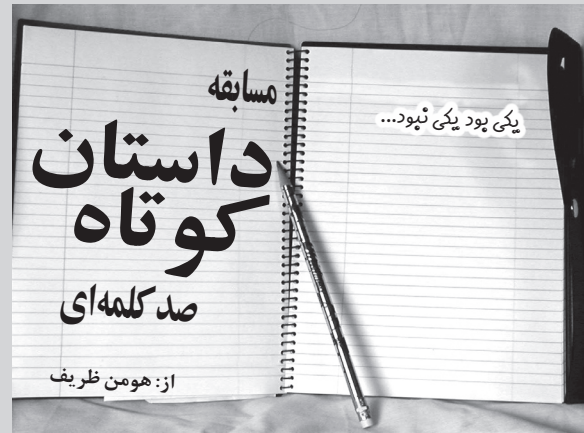 مسابقه
داستان
کوتاه
صد کلمه‌ای
از: هومن ظریف
یکی بود یکی نبود...